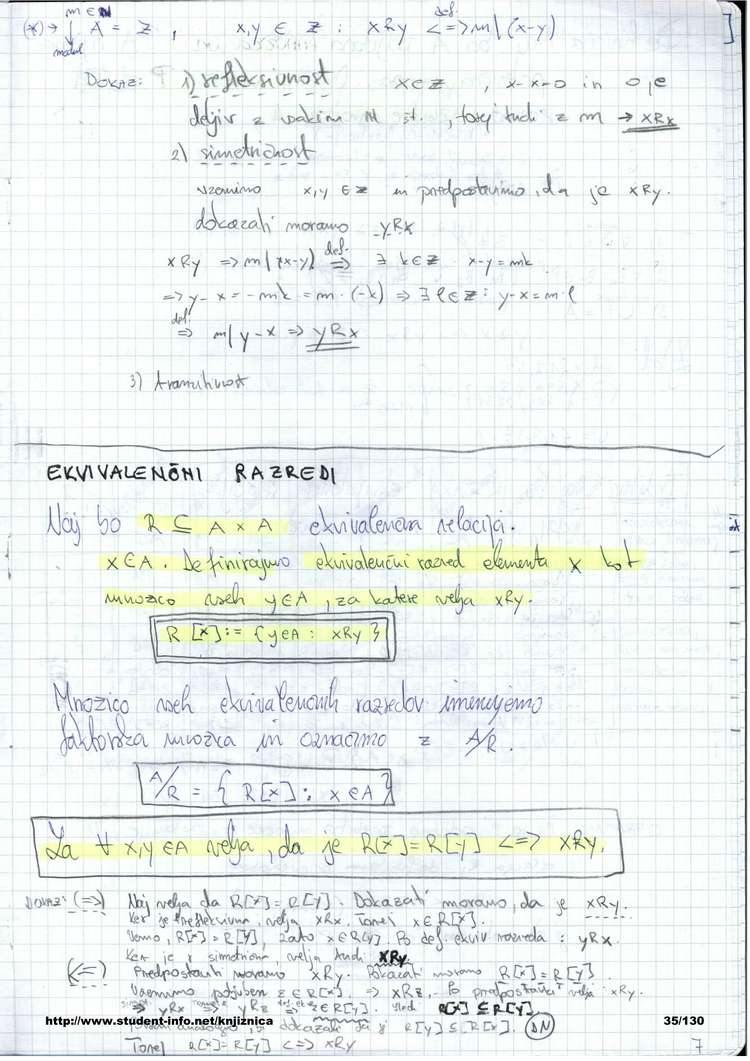 m ∈ N
(*) → ↓ A = Z , x,y ∈ Z : xRy <=>def. m | (x-y)
modul
DOKAZ: 1) refleksivnost x ∈ Z , x-x=0 in 0 je
deljiv z vsakim N št., torej tudi z m → xRx
2) simetričnost
vzemimo x,y ∈ Z in predpostavimo, da je xRy.
dokazati moramo yRx
xRy => m | (x-y) def.=> ∃ k ∈ Z x-y = mk
=> y-x = -mk = m · (-k) => ∃ l ∈ Z : y-x = m·l
def.=> m | y-x => yRx
3) tranzitivnost
EKVIVALENČNI RAZREDI
Naj bo R ⊆ A × A ekvivalenčna relacija.
x ∈ A. Definirajmo ekvivalenčni razred elementa x kot
množico vseh y ∈ A, za katere velja xRy.
R [x] := {y ∈ A : xRy}
Množico vseh ekvivalenčnih razredov imenujemo
faktorska množica in označimo z A/R.
A/R = { R[x] : x ∈ A }
Za ∀ x,y ∈ A velja, da je R[x] = R[y] <=> xRy.
DOKAZ: (=>) Naj velja da R[x] = R[y]. Dokazati moramo, da je xRy.
Ker je r refleksivna, velja xRx. Torej x ∈ R[x].
Vemo, R[x] = R[y], zato x ∈ R[y]. Po def. ekviv. razreda : yRx.
Ker je r simetrična, velja tudi xRy.
(<=) Predpostaviti moramo xRy. Dokazati moramo R[x] = R[y].
Vzemimo poljuben z ∈ R[x]. => xRz. Po predpostavki velja xRy.
=> yRx => yRz => z ∈ R[y]. R[x] ⊆ R[y]
http://www.student-info.net/knjiznica 35/130
dokazati da je R[y] ⊆ R[x]. (DN)
Torej R[x] = R[y] <=> xRy
7